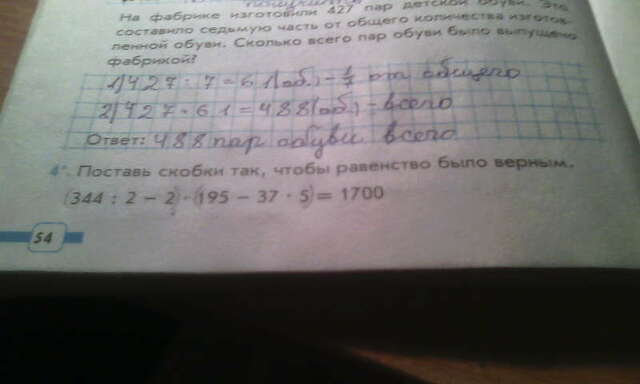 На фабрике изготовили 427 пар детской обуви. Это
составило седьмую часть от общего количества изготов-
ленной обуви. Сколько всего пар обуви было выпущено
фабрикой?
1) 427 : 7 = 61 (об.) - 1/7 от общего
2) 427 + 61 = 488 (об.) - всего
Ответ: 488 пар обуви всего
4*. Поставь скобки так, чтобы равенство было верным.
(344 : 2 - 2) · (195 - 37 · 5) = 1700
54